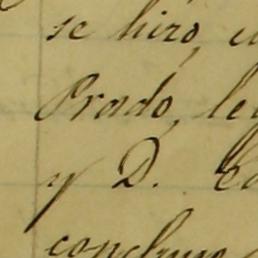 se hizo,
Prado, le
y D.
concluyo